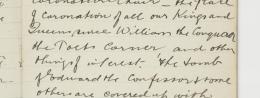 Coronation Chair – the place
of coronation of all our Kings and
Queens, since William the Conqueror
the Poets Corner and other
things of interest. The tomb
of Edward the Confessor & some
others are covered up with